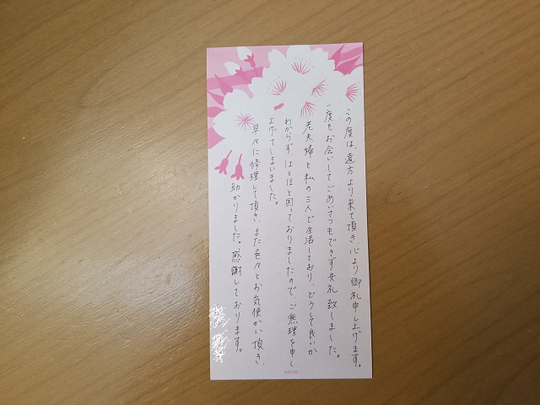 この度は、遠方より来て頂き心より御礼申し上げます。
一度もお会いしてごあいさつもできず失礼致しました。
老夫婦と私の三人で生活しており、どうして良いか
わからず ほとほと困っておりましたので、ご無理を申し
上げてしまいました。
早々に修理して頂き、また色々とお気使い頂き、
助かりました。感謝しております。